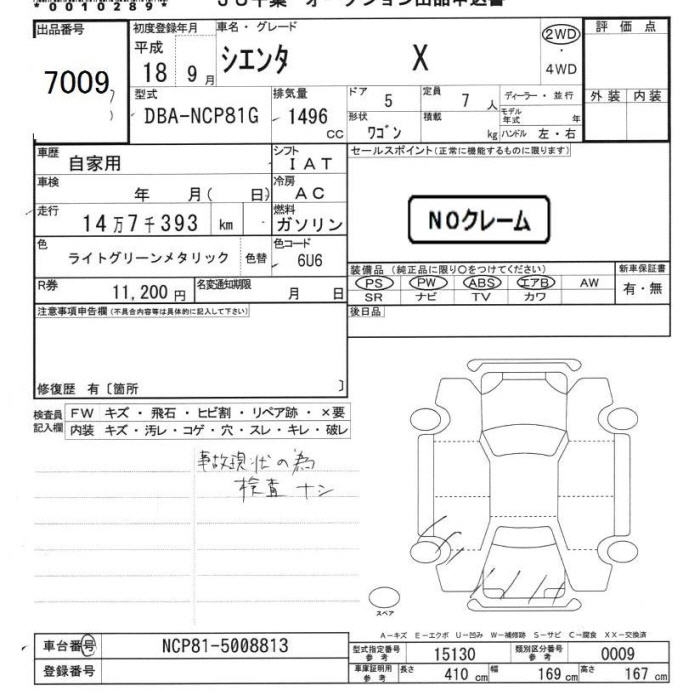 *00102897*
JU千葉 オークション出品申込書
出品番号
7009
初度登録年月
平成
18 9月
車名・グレード
シエンタ X
2WD
・
4WD
評価点
外装 内装
型式
DBA-NCP81G
排気量
1496
CC
ドア
5
定員
7 人
ディーラー・並行
モデル年式 年
形状
ワゴン
積載
kg
ハンドル 左・右
車歴
自家用
シフト
IAT
車検
年 月( 日)
冷房
AC
走行
14万7千393 km
燃料
ガソリン
色
ライトグリーンメタリック
色替
色コード
6U6
R券
11,200 円
名変通知期限
月 日
セールスポイント(正常に機能するものに限ります)
NOクレーム
装備品(純正品に限り○をつけてください)
PS PW ABS エアB AW
SR ナビ TV カワ
新車保証書
有・無
後日品
注意事項申告欄(不具合内容等は具体的に記入して下さい)
修復歴 有〔箇所 〕
検査員記入欄
FW キズ・飛石・ヒビ割・リペア跡・×要
内装 キズ・汚レ・コゲ・穴・スレ・キレ・破レ
事故現状の為
検査ナシ
スペア
A－キズ E－エクボ U－凹み W－補修跡 S－サビ C－腐食 XX－交換済
車台番号
NCP81-5008813
登録番号
型式指定番号
参考
15130
類別区分番号
参考
0009
車庫証明用
参考
長さ
410 cm
幅
169 cm
高さ
167 cm